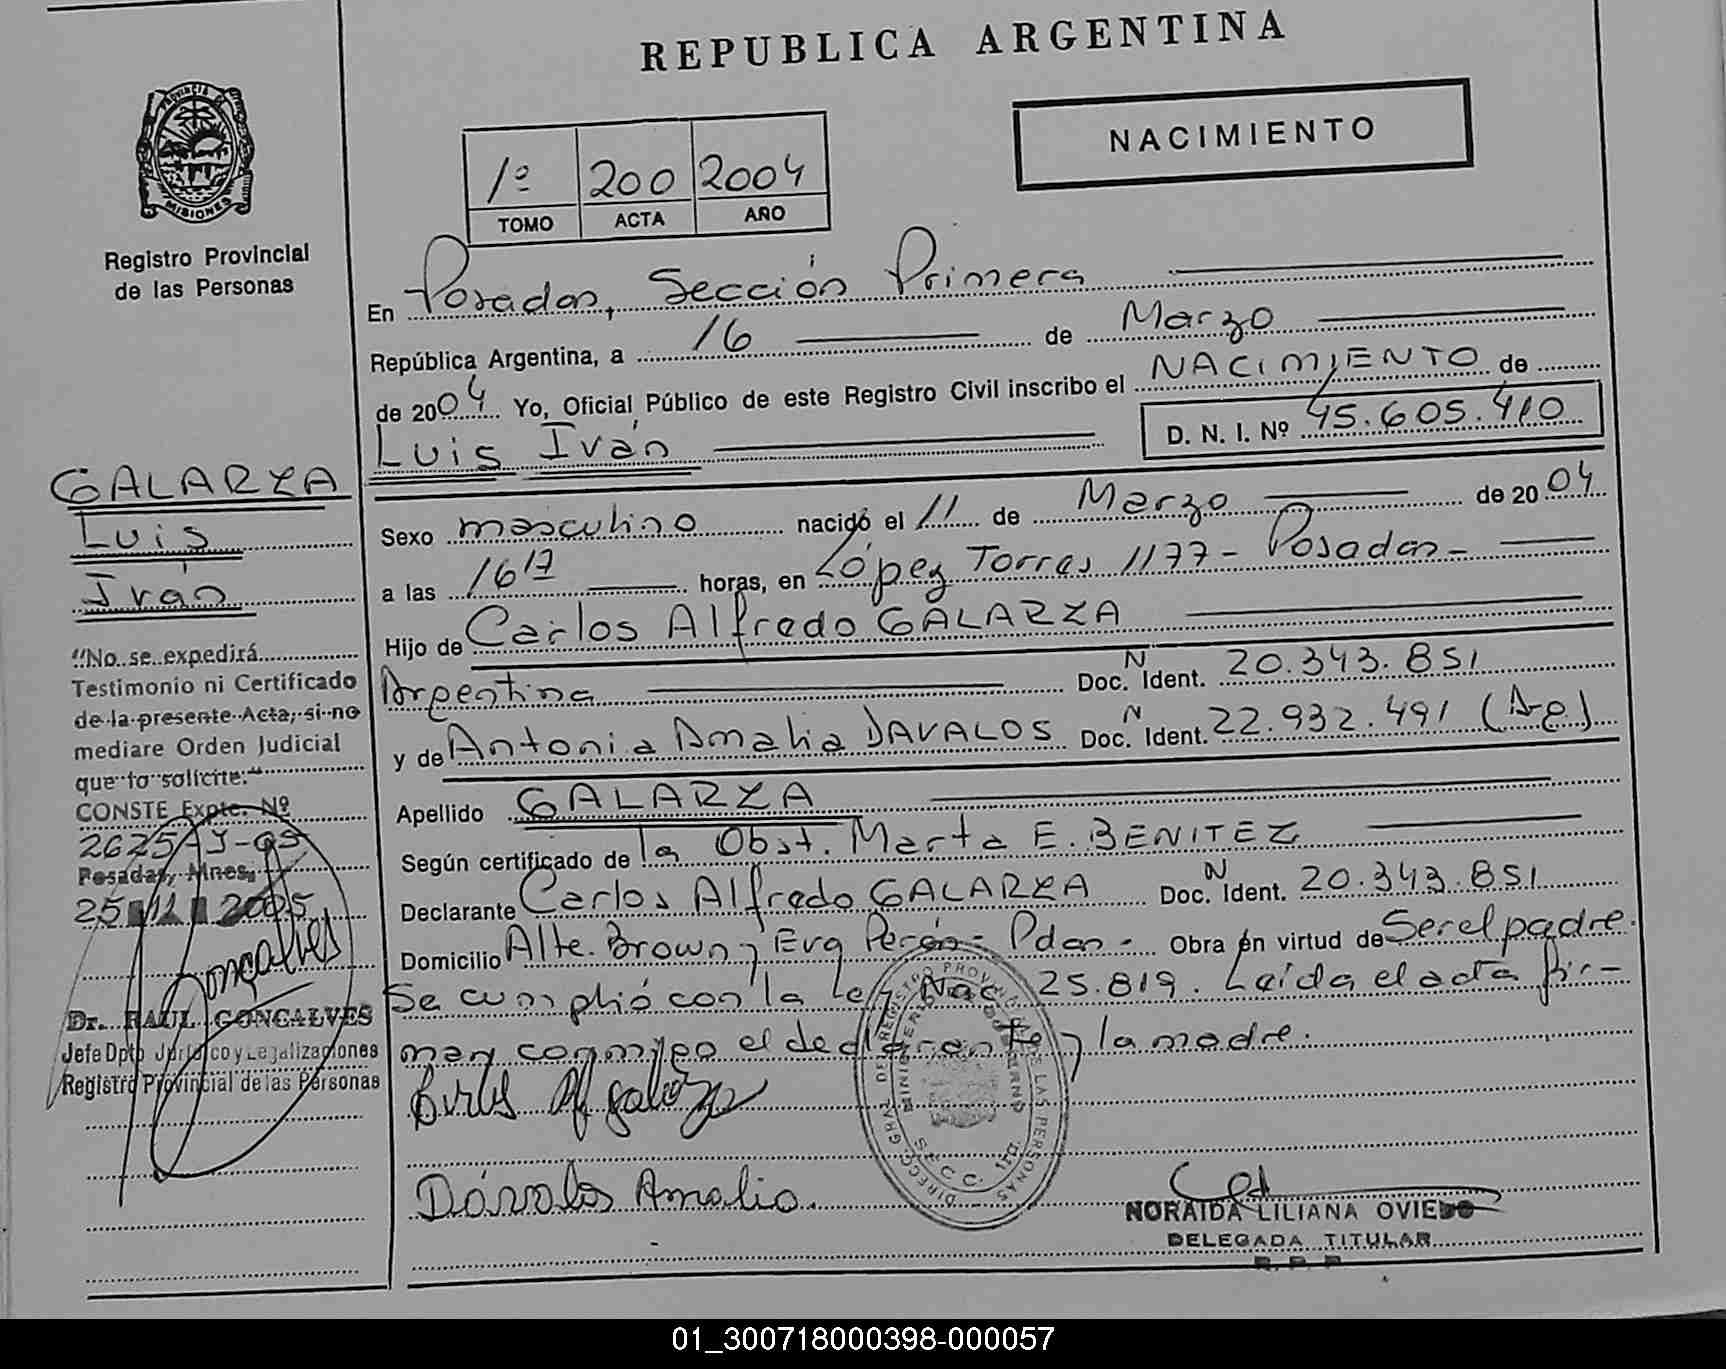 REPUBLICA ARGENTINA
NACIMIENTO
PROVINCIA DE
MISIONES
Registro Provincial
de las Personas
1º 200 2004
TOMO ACTA AÑO
En Posadas, Sección Primera
República Argentina, a 16 de Marzo
de 2004 Yo, Oficial Público de este Registro Civil inscribo el NACIMIENTO de
Luis Iván D. N. I. Nº 45.605.410
Sexo masculino nacido el 11 de Marzo de 2004
a las 16 17 horas, en López Torres 1177 - Posadas -
Hijo de Carlos Alfredo GALARZA
Argentina Doc. N Ident. 20.343.851
y de Antonia Amalia DAVALOS Doc. N Ident. 22.932.491 (Ag)
Apellido GALARZA
Según certificado de la Obst. Marta E. BENITEZ
Declarante Carlos Alfredo GALARZA Doc. N Ident. 20.343.851
Domicilio Alte. Brown y Eva Perón - Pdas - Obra en virtud de Ser el padre.
Se cumplió con la Ley Nac. 25.819. Leída el acta fir-
man conmigo el declarante y la madre.
Dávalos Amalia
NORAIDA LILIANA OVIEDO
DELEGADA TITULAR
R. P. P.
GALARZA
Luis
Iván
"No se expedirá
Testimonio ni Certificado
de la presente Acta, si no
mediare Orden Judicial
que lo solicite."
CONSTE Expte. Nº
Posadas, Mnes,
25 11 2005
Goncalves
Dr. RAUL GONCALVES
Jefe Dpto Jurídico y Legalizaciones
Registro Provincial de las Personas
01_300718000398-000057